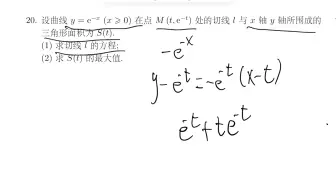 20. 设曲线 y = e^{-x} (x ⩾ 0) 在点 M (t, e^{-t}) 处的切线 l 与 x 轴 y 轴所围成的
三角形面积为 S(t).
(1) 求切线 l 的方程;
(2) 求 S(t) 的最大值.
-e^{-x}
y-e^{-t}=-e^{-t}(x-t)
e^{-t}+te^{-t}